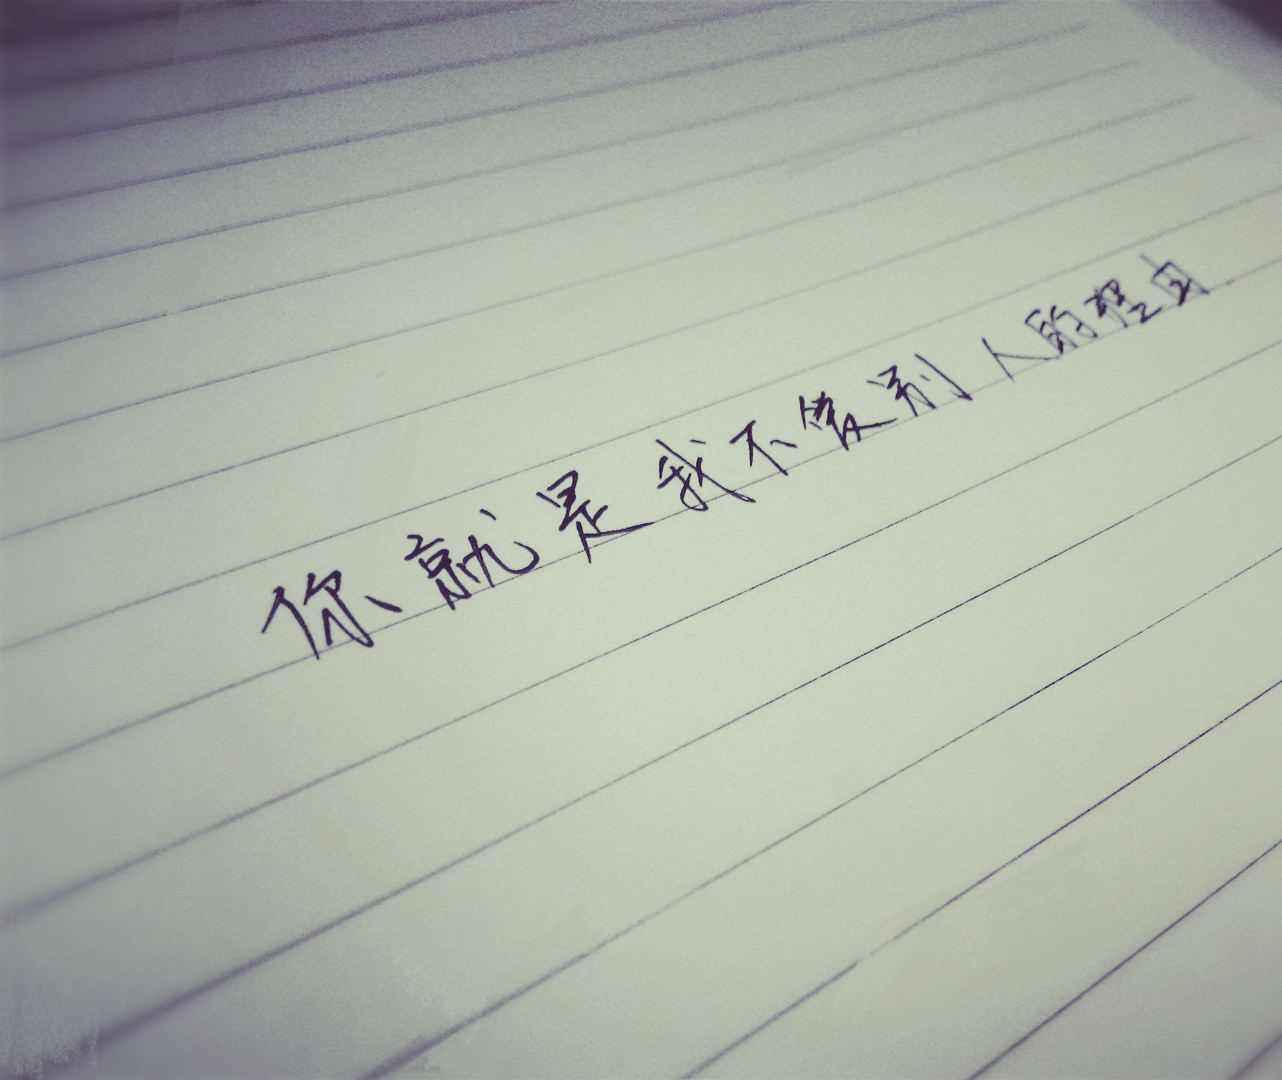 你就是我不爱别人的理由